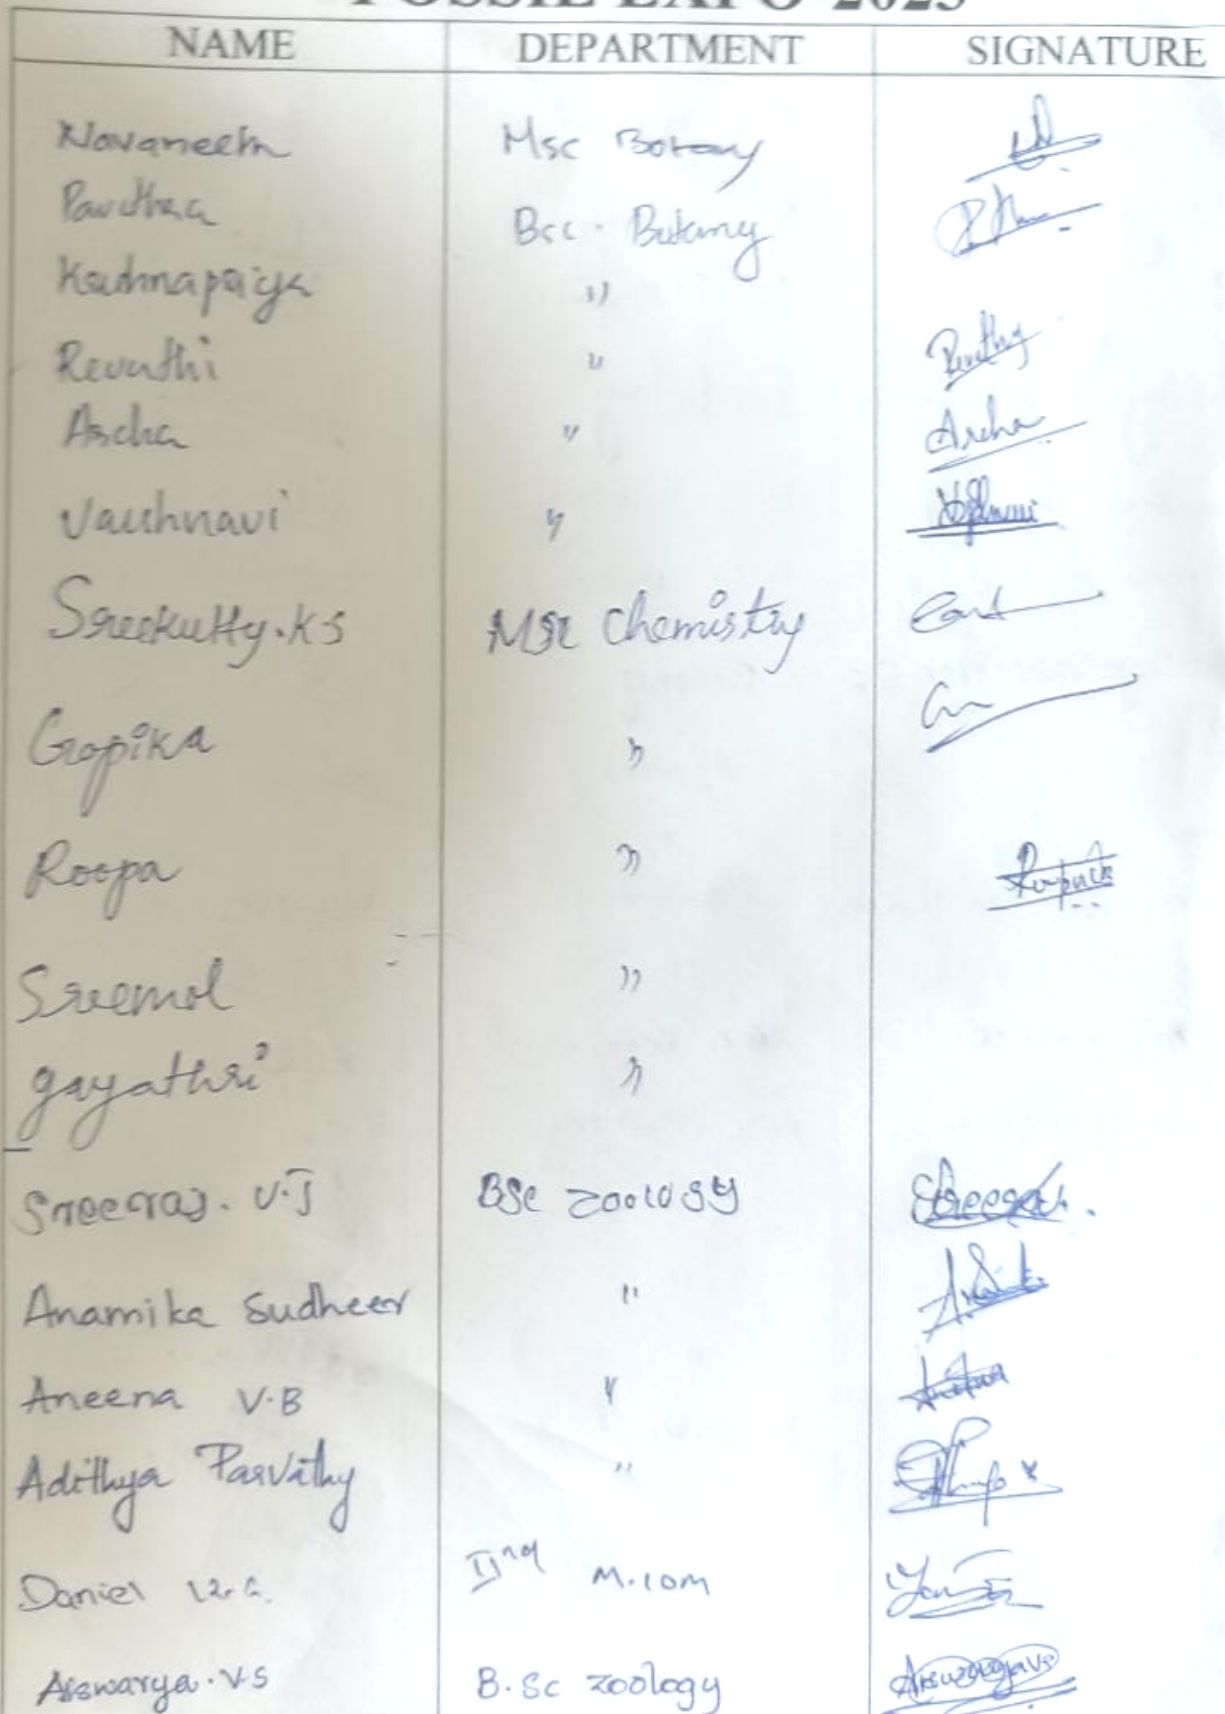 FOSSIL EXPO 2023
NAME DEPARTMENT SIGNATURE
Navaneeth Msc Botany
Pavithra Bsc - Botany
"
Revathi " Revathy
Archa " Archa
Vaishnavi "
Sreekutty.K.S MSc Chemistry
Gopika "
Roopa "
Sreemol "
gayathri "
Sreeraj. V.J BSc zoology Sreeraj.
Anamika Sudheer "
Aneena V.B "
Adithya Parvathy "
Daniel IInd M.com
Aiswarya.V.S B.Sc zoology Aiswarya VS